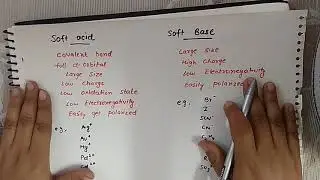 Soft acid
Covalent bond
full d-orbital
Large Size
Low charge
Low oxidation state
Low Electronegativity
Easily get polarized
eg. Ag⁺
Au⁺
Hg⁺
Pd²⁺
Soft Base
Large Size
High charge
Low Electronegativity
Easily polarized
eg. Br⁻
I⁻
SCN⁻
CN⁻